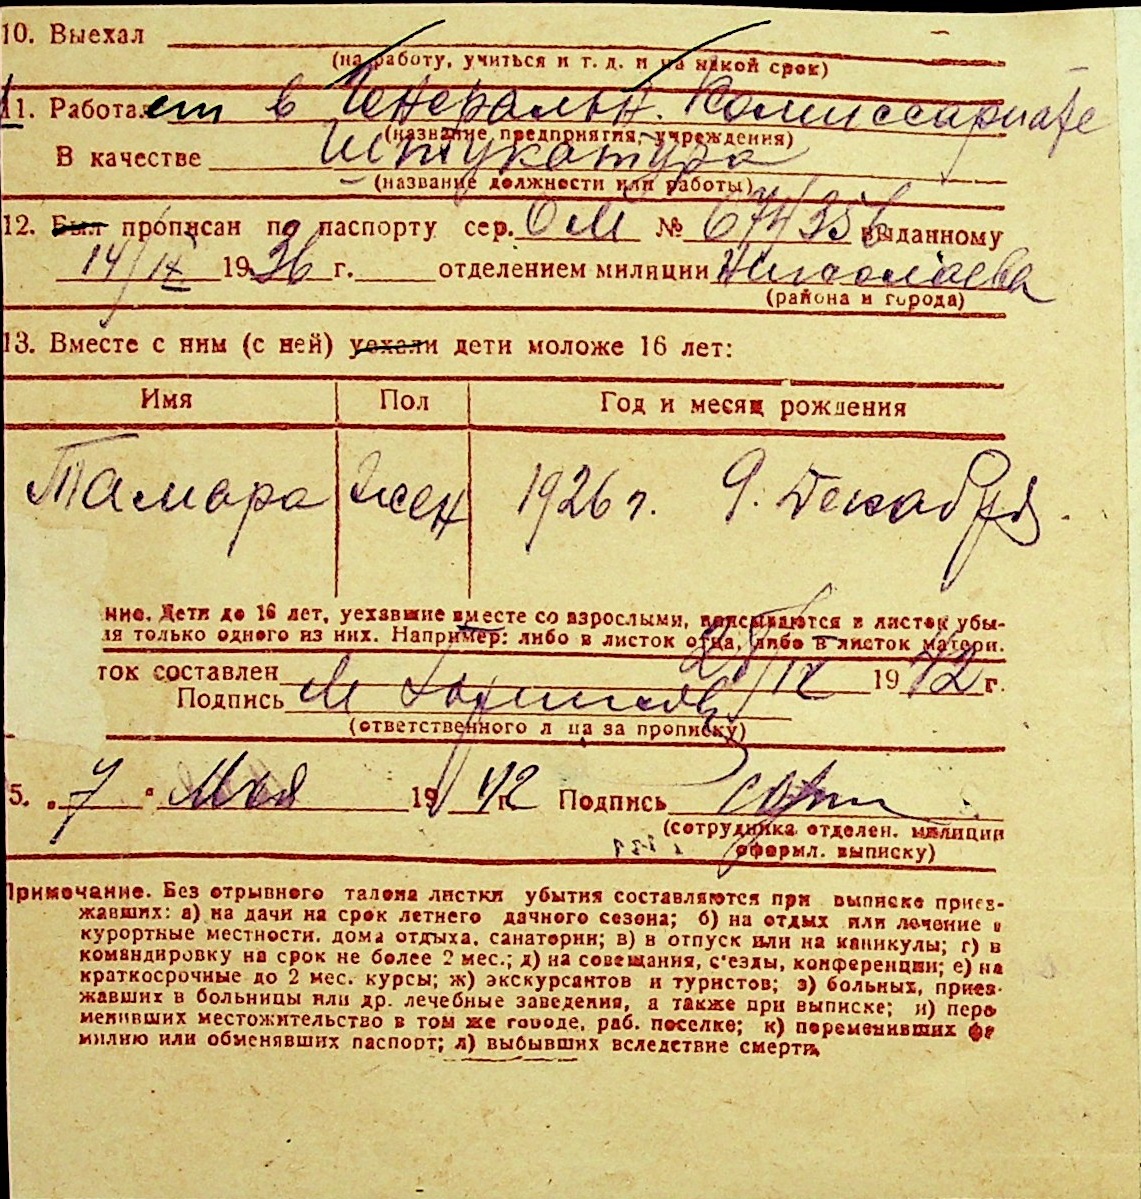 10. Выехал
(на работу, учиться и т. д. и на какой срок)
11. Работает в Генеральн. Комиссариате
(название предприятия, учреждения)
В качестве Штукатура
(название должности или работы)
12. Был прописан по паспорту сер. ОМ № 674356 выданному
14/IX 1936 г. отделением милиции Николаева
(района и города)
13. Вместе с ним (с ней) уехали дети моложе 16 лет:
Имя Пол Год и месяц рождения
Тамара Жен 1926 г. 9. Декабря.
ние. Дети до 16 лет, уехавшие вместе со взрослыми, вписываются в листок убы-
ия только одного из них. Например: либо в листок отца, либо в листок матери.
ток составлен 28/IV 1942 г.
Подпись М
(ответственного лица за прописку)
5. „7“ Мая 1942 г. Подпись
(сотрудника отделен. милиции
оформл. выписку)
Примечание. Без отрывного талона листки убытия составляются при выписке приез-
жавших: а) на дачи на срок летнего дачного сезона; б) на отдых или лечение в
курортные местности, дома отдыха, санатории; в) в отпуск или на каникулы; г) в
командировку на срок не более 2 мес.; д) на совещания, с'езды, конференции; е) на
краткосрочные до 2 мес. курсы; ж) экскурсантов и туристов; з) больных, приез-
жавших в больницы или др. лечебные заведения, а также при выписке; и) пере
менивших местожительство в том же городе, раб. поселке; к) переменивших фа
милию или обменявших паспорт; л) выбывших вследствие смерти.